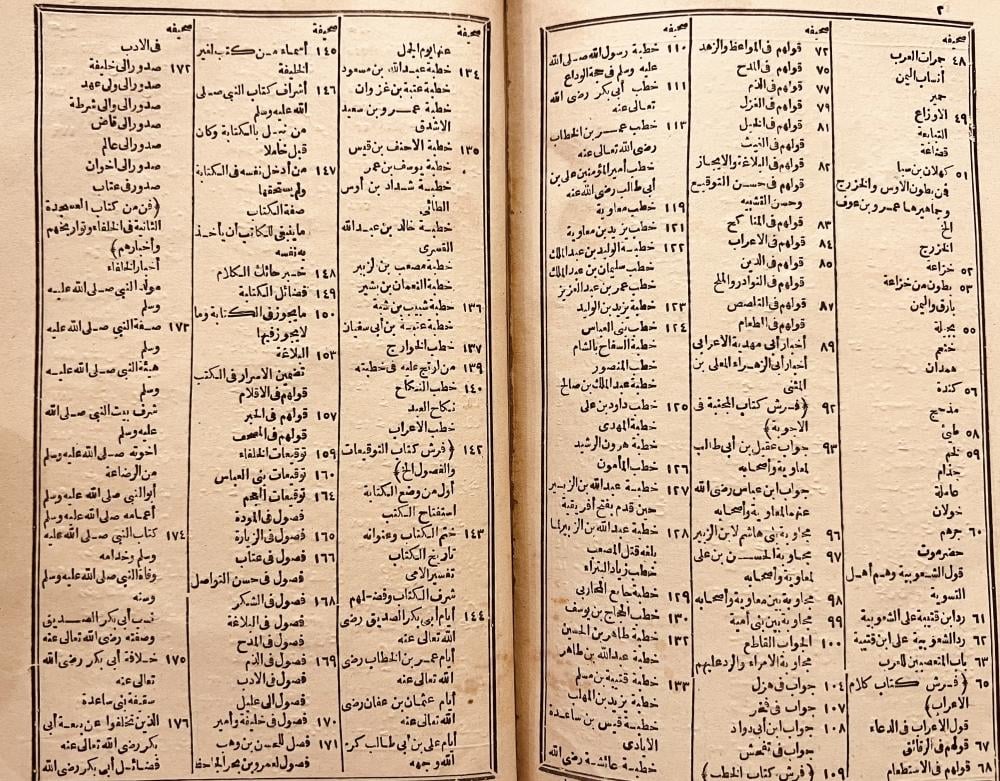 ٢
صحيفه
٤٨ جمرات العرب
أنساب اليمن
حمير
٤٩ الاوزاع
التبابعة
قضاعة
٥١ كهلان بن سبا
فن بطون الأوس والخزرج
وجماهيرها عمرو بن عوف
الخ
الخزرج
٥٢ خزاعة
٥٣ بطون من خزاعة
بارق واليمن
٥٥ بجيلة
خثعم
همدان
٥٦ كندة
مذحج
٥٨ طيئ
٥٩ لخم
جذام
عاملة
خولان
٦٠ جرهم
حضرموت
قول الشعوبية وهم أهل
التسوية
٦١ رد ابن قتيبة على الشعوبية
٦٢ رد الشعوبية على ابن قتيبة
٦٣ باب المتعصبين للعرب
٦٥ (فرش كتاب كلام
الاعراب)
قول الاعراب فى الدعاء
٦٧ قولهم فى الرقائق
٦٨ قولهم فى الاستطعام
صحيفه
٧٢ قولهم فى المواعظ والزهد
٧٥ قولهم فى المدح
٧٧ قولهم فى الذم
٧٩ قولهم فى الغزل
٨١ قولهم فى الخيل
قولهم فى الغيث
٨٢ قولهم فى البلاغة والايجاز
قولهم فى حسن التوقيع
وحسن التشبيه
٨٣ قولهم فى المناكح
٨٤ قولهم فى الاعراب
٨٥ قولهم فى الدين
قولهم فى النوادر والملح
٨٧ قولهم فى التلصص
قولهم فى الطعام
٨٩ أخبار أبى مهدية الاعرابى
أخبار أبى الزهراء المعلى بن
المثنى
٩٢ (فرش كتاب المجنبة فى
الاجوبة)
٩٣ جواب عقيل بن أبى طالب
لمعاوية وأصحابه
جواب ابن عباس رضى الله
عنهما لمعاوية وأصحابه
٩٦ مجاوبة بنى هاشم لابن الزبير
٩٧ مجاوبة الحسن بن على
لمعاوية وأصحابه
٩٨ مجاوبة بين معاوية وأصحابه
٩٩ مجاوبة بين بنى أمية
الجواب القاطع
مجاوبة الامراء والرد عليهم
١٠٤ جواب فى هزل
١٠٧ جواب فى فخر
١٠٨ جواب ابن أبى دواد
جواب فى تفحش
١٠٩ (فرش كتاب الخطب)
صحيفه
١١٠ خطبة رسول الله صلى الله
عليه وسلم فى حجة الوداع
١١١ خطب أبى بكر رضى الله
تعالى عنه
١١٣ خطب عمر بن الخطاب
رضى الله تعالى عنه
خطب أمير المؤمنين على بن
أبى طالب رضى الله عنه
١١٩ خطب معاوية
١٢١ خطب يزيد بن معاوية
١٢٢ خطبة الوليد بن عبد الملك
خطب سليمان بن عبد الملك
خطب عمر بن عبد العزيز
١٢٣ خطبة يزيد بن الوليد
١٢٤ خطب بنى العباس
خطبة السفاح بالشام
خطب المنصور
خطبة عبد الملك بن صالح
١٢٥ خطب داود بن على
خطبة المهدى
خطبة هرون الرشيد
١٢٦ خطب المأمون
١٢٧ خطبة عبد الله بن الزبير
حين قدم بفتح أفريقية
١٢٨ خطبة عبد الله بن الزبير لما
بلغه قتل المصعب
خطب زياد البتراء
١٢٩ خطبة جامع المحاربى
١٣٠ خطب الحجاج بن يوسف
١٣٢ خطبة طاهر بن الحسين
خطبة عبد الله بن طاهر
١٣٣ خطبة قتيبة بن مسلم
خطبة يزيد بن المهلب
خطبة قيس بن ساعدة
الايادى
خطبة عائشة رضى الله
صحيفة
عنها يوم الجمل
١٣٤ خطبة عبد الله بن مسعود
خطبة عتبة بن غزوان
خطبة عمرو بن سعيد
الاشدق
١٣٥ خطبة الاحنف بن قيس
خطبة يوسف بن عمر
خطبة شداد بن أوس
الطائى
خطبة خالد بن عبد الله
القسرى
خطبة مصعب بن الزبير
خطبة النعمان بن بشير
١٣٦ خطبة شبيب بن شيبة
خطبة عتبة بن أبى سفيان
١٣٧ خطب الخوارج
١٣٩ من ارتج عليه فى خطبته
١٤٠ خطب النكاح
نكاح العبد
خطب الاعراب
١٤٢ (فرش كتاب التوقيعات
والفصول الخ)
أول من وضع الكتابة
استفتاح الكتب
١٤٣ ختم الكتاب وعنوانه
تاريخ الكتاب
تفسير الامى
شرف الكتاب وفضلهم
١٤٤ أيام أبى بكر الصديق رضى
الله تعالى عنه
أيام عمر بن الخطاب رضى
الله تعالى عنه
أيام عثمان بن عفان رضى
الله تعالى عنه
أيام على بن أبى طالب كرم
الله وجهه
صحيفة
١٤٥ أسماء من كتب لغير
الخليفة
١٤٦ أشراف كتاب النبى صلى
الله عليه وسلم
من نبل بالكتابة وكان
قبل خاملا
١٤٧ من أدخل نفسه فى الكتابة
ولم يستحقها
صفة الكتاب
ما ينبغى للكاتب أن يأخذ
به نفسه
١٤٨ خبر حائك الكلام
١٤٩ فضائل الكتابة
١٥٠ ما يجوز فى الكتابة وما
لا يجوز فيها
١٥٣ البلاغة
تضمين الاسرار فى الكتب
قولهم فى الاقلام
١٥٧ قولهم فى الحبر
قولهم فى المصحف
١٥٩ توقيعات الخلفاء
١٦٠ توقيعات بنى العباس
١٦٤ توقيعات العجم
فصول فى المودة
١٦٥ فصول فى الزيارة
١٦٦ فصول فى عتاب
فصول فى حسن التواصل
١٦٨ فصول فى الشكر
فصول فى البلاغة
فصول فى المدح
١٦٩ فصول فى الذم
فصول فى الادب
فصول الى عليل
١٧٠ فصول فى خليفة وأمير
١٧١ فصل للحسن بن وهب
فصول لعمرو بن بحر الجاحظ
صحيفه
فى الادب
١٧٢ صدور الى خليفة
صدور الى ولى عهد
صدور الى والى شرطة
صدور الى قاض
صدور الى عالم
صدور الى اخوان
صدور فى عتاب
(فن من كتاب العسجدة
الثانية فى الخلفاء وتواريخهم
وأخبارهم)
أخبار الخلفاء
مولد النبى صلى الله عليه
وسلم
١٧٣ صفة النبى صلى الله عليه
وسلم
هيئة النبى صلى الله عليه
وسلم
شرف بيت النبى صلى الله
عليه وسلم
اخوته صلى الله عليه وسلم
من الرضاعة
أبو النبى صلى الله عليه وسلم
أعمامه صلى الله عليه وسلم
١٧٤ كتاب النبى صلى الله عليه
وسلم وخدامه
وفاة النبى صلى الله عليه وسلم
وسنه
نسب أبى بكر الصديق
وصفته رضى الله تعالى عنه
١٧٥ خلافة أبى بكر رضى الله
تعالى عنه
سقيفة بنى ساعدة
١٧٦ الذين تخلفوا عن بيعة أبى
بكر رضى الله تعالى عنه
فضائل أبى بكر رضى الله